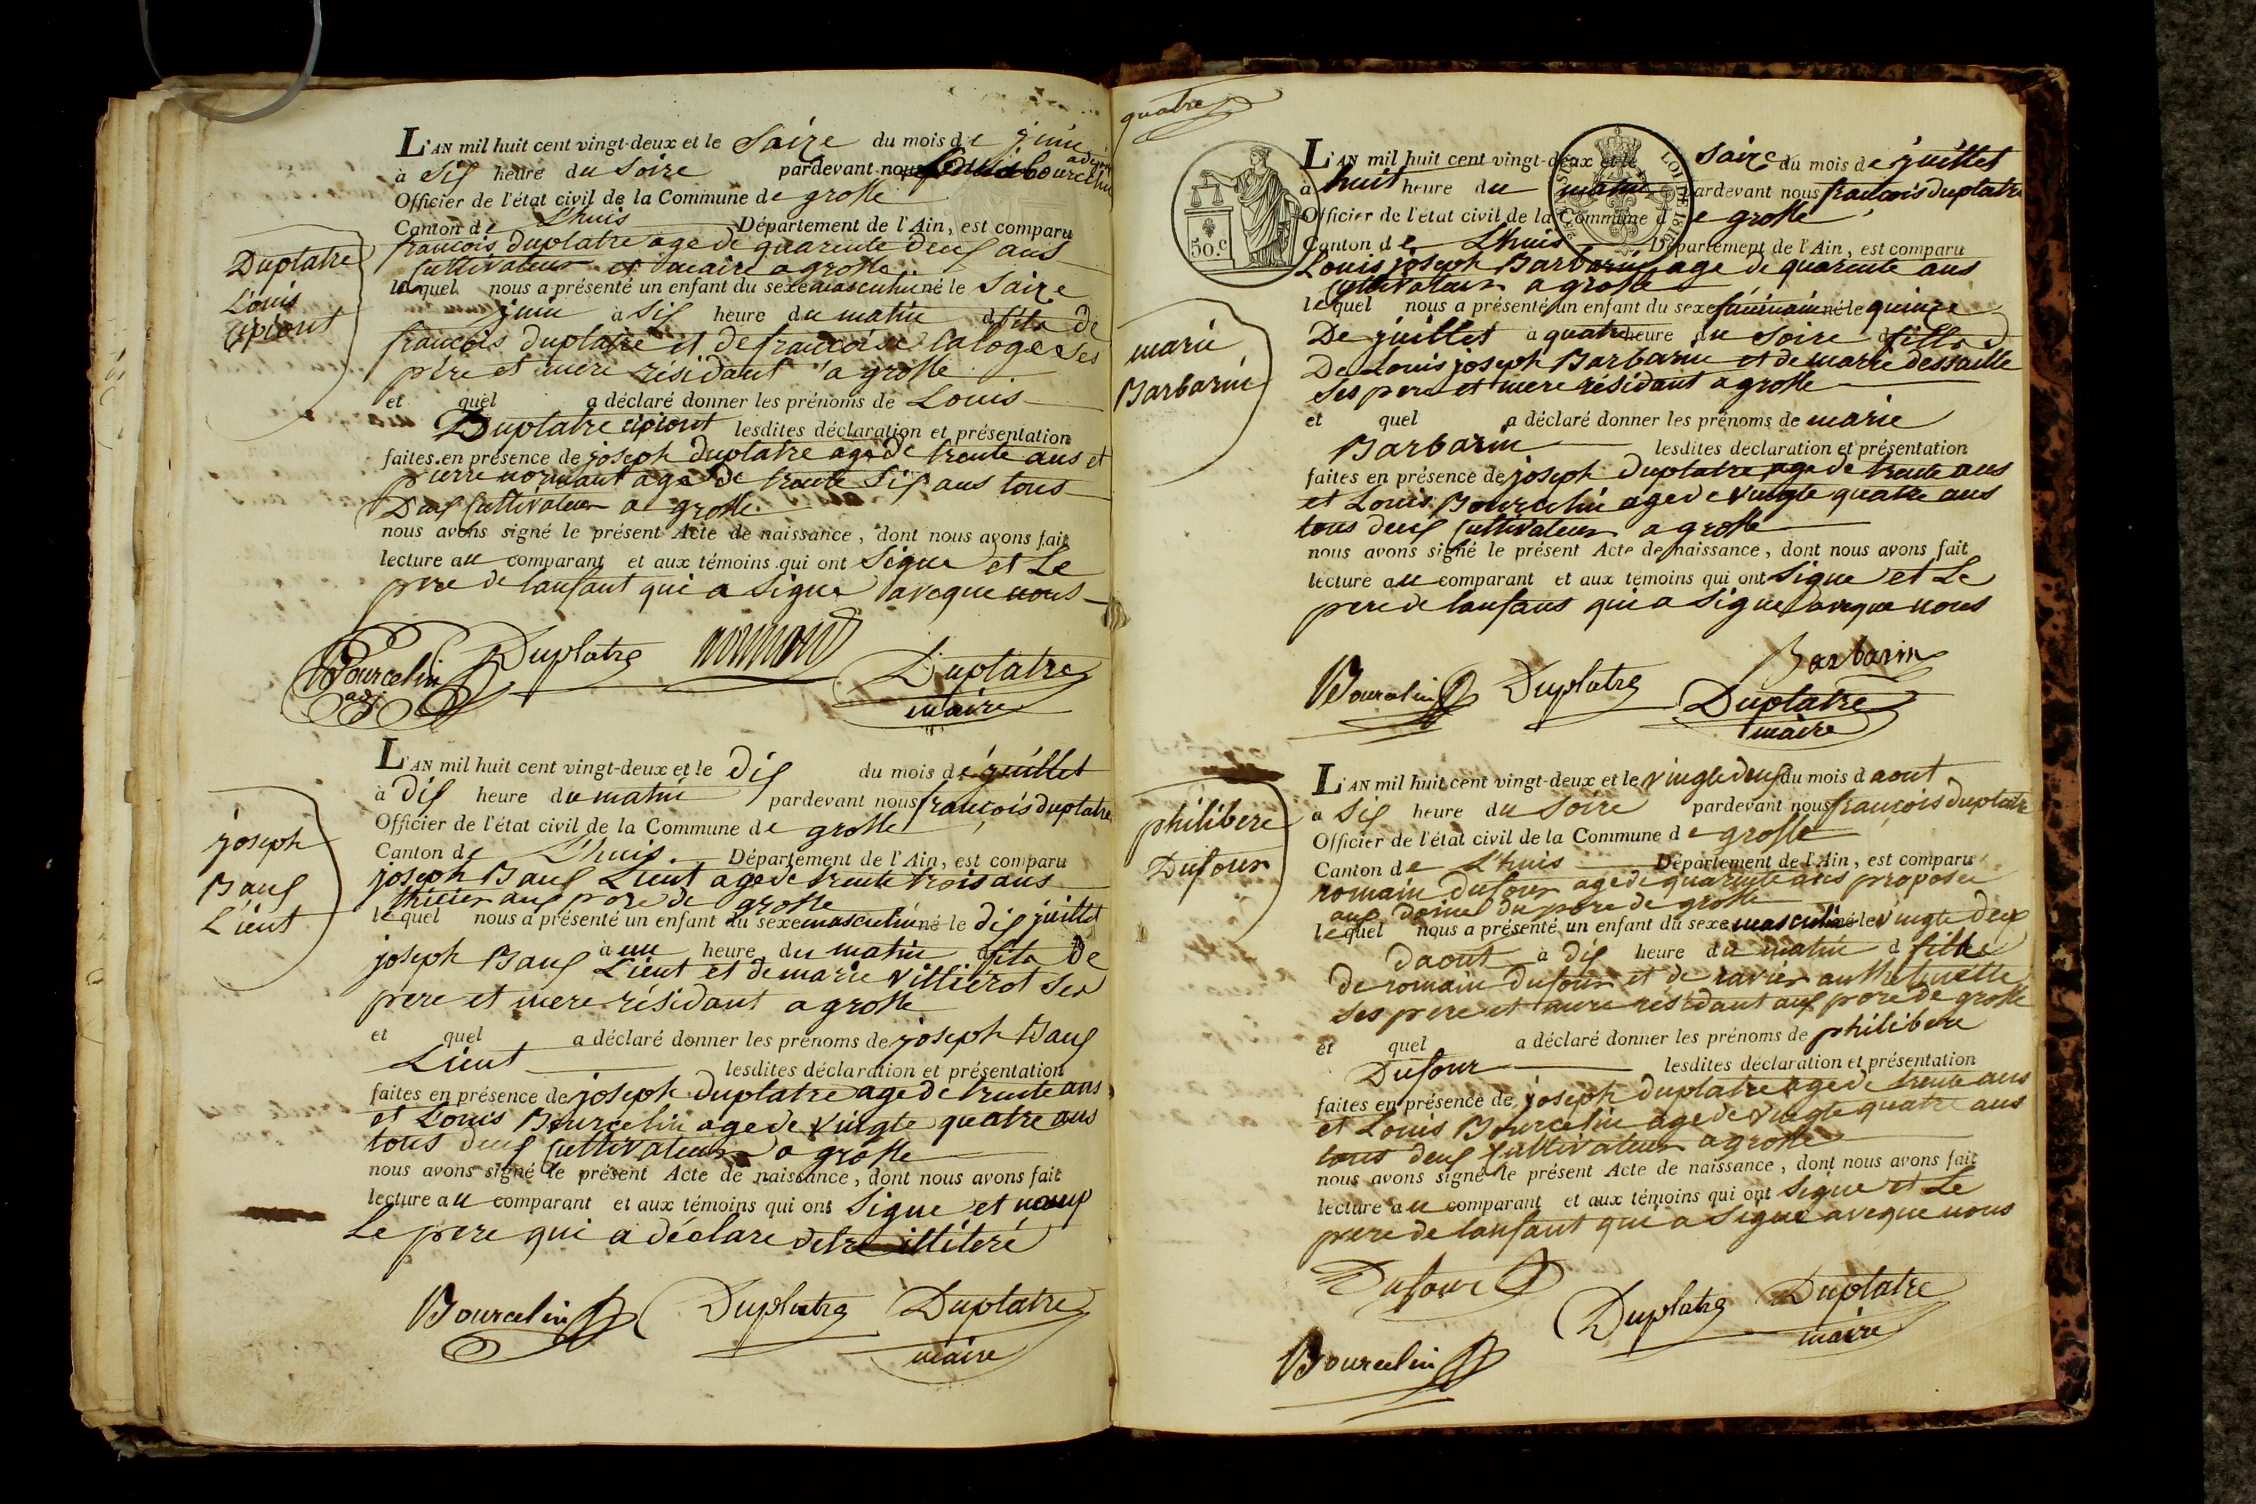 L'AN mil huit cent vingt-deux et le saize du mois de juin
à sis heure du soire pardevant nous Louis bourcelin
Officier de l'état civil de la Commune de grolle
Canton de L'huis Département de l'Ain, est comparu
françois duplatre age de quarente deus ans
cultivateur et maire a grolle
le quel nous a présenté un enfant du sexe masculin né le saize
juin à sis heure du matin fils de
françois duplatre et de francoise ses
père et mere résidant a grolle
et quel a déclaré donner les prénoms de Louis
Duplatre lesdites déclaration et présentation
faites en présence de joseph duplatre age de trente ans et
pierre normant age de trente sis ans tous
Deus cultivateur a grolle
nous avons signé le présent Acte de naissance, dont nous avons fait
lecture au comparant et aux témoins qui ont signe et Le
pere de lanfant qui a signe aveque nous
Duplatre
Louis
Bourcelin
adj
Duplatre
Duplatre
maire
L'AN mil huit cent vingt-deux et le dis du mois de juillet
à dis heure du matin pardevant nous françois duplatre
Officier de l'état civil de la Commune de grolle
Canton de L'huis Département de l'Ain, est comparu
joseph Baus Lient age de trente trois ans
aus pore de grolle
le quel nous a présenté un enfant du sexe masculin né le dis juillet
à un heure du matin fils De
joseph Baus Lient et de marie villierot ses
pere et mere résidant a grolle
et quel a déclaré donner les prénoms de joseph Baus
Lient lesdites déclaration et présentation
faites en présence de joseph duplatre age de trente ans
et Louis Bourcelin age de vingte quatre ans
tous deus cultivateur a grolle
nous avons signé le présent Acte de naissance, dont nous avons fait
lecture au comparant et aux témoins qui ont signe et
Le pere qui a déclare detre illiteré
joseph
Baus
Lient
Bourcelin
Duplatre
Duplatre
maire
quatre
50.c
LOI DE 1816
L'AN mil huit cent vingt-deux et le saize du mois de juillet
à huit heure du matin pardevant nous francois duplatre
Officier de l'état civil de la Commune de grolle
Canton de L'huis Département de l'Ain, est comparu
Louis joseph Barbarin age de quarente ans
cultivateur a grolle
le quel nous a présenté un enfant du sexe féminain né le quinze
De juillet à quatre heure du soire fille
De Louis joseph Barbarin et de marie dessaille
ses pere et mere résidant a grolle
et quel a déclaré donner les prénoms de marie
Barbarin lesdites déclaration et présentation
faites en présence de joseph duplatre age de trente ans
et Louis Bourcelin age de vingte quatre ans
tous deus cultivateur a grolle
nous avons signé le présent Acte de naissance, dont nous avons fait
lecture au comparant et aux témoins qui ont signe et Le
pere de lanfans qui a signe aveque nous
marie
Barbarin
Barbarin
Bourcelin
Duplatre
Duplatre
maire
L'AN mil huit cent vingt-deux et le vingte deus du mois d aout
à sis heure du soire pardevant nous françois duplatre
Officier de l'état civil de la Commune de grolle
Canton de L'huis Département de l'Ain, est comparu
romain dufour age de quarente ans proposer
aus du pore de grolle
le quel nous a présenté un enfant du sexe masculin né le vingte deus
daout à dis heure du matin d fille
de romain dufour et de
ses pere et mere résidant aus pore de grolle
et quel a déclaré donner les prénoms de philibere
Dufour lesdites déclaration et présentation
faites en présence de joseph duplatre age de trente ans
et Louis Bourcelin age de vingte quatre ans
tous deus cultivateur a grolle
nous avons signé le présent Acte de naissance, dont nous avons fait
lecture au comparant et aux témoins qui ont signe et Le
pere de lanfant qui a signe aveque nous
philibere
Dufour
Dufour
Duplatre
Duplatre
maire
Bourcelin